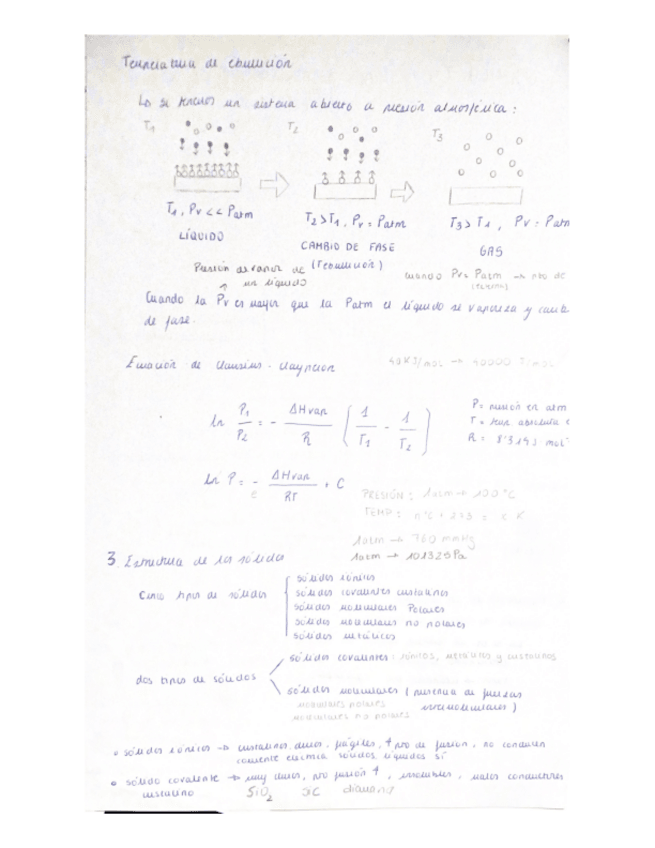 Temperatura de ebullición
Lo si tenemos un sistema abierto a presión atmosférica:
T1 T2 T3
T1, Pv << Patm
T2 > T1, Pv = Patm
T3 > T1, Pv = Patm
LÍQUIDO
CAMBIO DE FASE
GAS
Presión de vapor de un líquido
(Tebullición)
cuando Pv = Patm → pto de
Cuando la Pv es mayor que la Patm el líquido se vaporiza y camb
de fase.
Ecuación de Clausius-Clapeyron
40 KJ/mol → 40000 J/mol
ln P1/P2 = - ΔHvap/R (1/T1 - 1/T2)
P = presión en atm
T = tem. absoluta
R = 8'314 J mol
ln P = - ΔHvap/RT + C
PRESIÓN: 1 atm → 100°C
TEMP: n°C + 273 = c K
1 atm → 760 mmHg
1 atm → 101325 Pa
3. Estructura de los sólidos
Cinco tipos de sólidos
sólidos iónicos
sólidos covalentes cristalinos
sólidos moleculares Polares
sólidos moleculares no polares
sólidos metálicos
dos tipos de sólidos
sólidos covalentes: iónicos, metálicos y cristalinos
sólidos moleculares (presencia de fuerzas
intermoleculares)
moleculares polares
moleculares no polares
sólidos iónicos → cristalinos, duros, frágiles, ↑ pto de fusión, no conducen
corriente eléctrica sólidos, líquidos sí
sólido covalente → muy duros, pto fusión ↑, insolubles, malos conductores
cristalino SiO2 SiC diamante